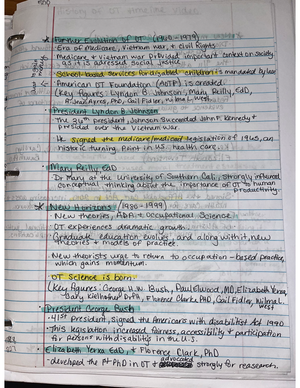 * Former Evolution of OT (1960 - 1979)
Era of Medicare, Vietnam war, & Civil Rights.
Medicare & Vietnam war provided important context on society
as it is addressed social justice.
School-based services for disabled children is mandated by law
American OT Foundation (AOTF) is created.
(Key figures: Lyndon B. Johnson, Mary Reilly, EdD,
A. Jean Ayres, PhD, Gail Fidler, Wilma L. West)
President Lyndon B. Johnson
The 36th president, Johnson succeeded John F. Kennedy &
presided over the Vietnam war.
He signed the medicare/medicaid legislation of 1965, an
historic turning point in U.S. health care.
Mary Reilly, EdD
Dr. Mary at the University of Southern Cali, strongly influenced
conceptual thinking about the importance of OT to human
productivity.
* New Horizons (1980 - 1999)
New theories, ADA & Occupational Science.
OT experiences dramatic growth.
Graduate education evolves, and along with it, new
theories & models of practice.
New theorists urge to return to occupation-based practice,
which gains momentum.
OT Science is born.
(Key figures: George H.W. Bush, Paul Ellwood, MD, Elizabeth Yerxa,
Gary Kielhofner DrPH, Florence Clark, PhD, Gail Fidler, Wilma L. West)
President George Bush
41st President, signed the Americans with disabilities Act 1990
This legislation increased fairness, accessibility & participation
for persons with disabilities in the U.S.
Elizabeth Yerxa EdD, & Florence Clark, PhD
developed the 1st PhD in OT & advocated strongly for research.